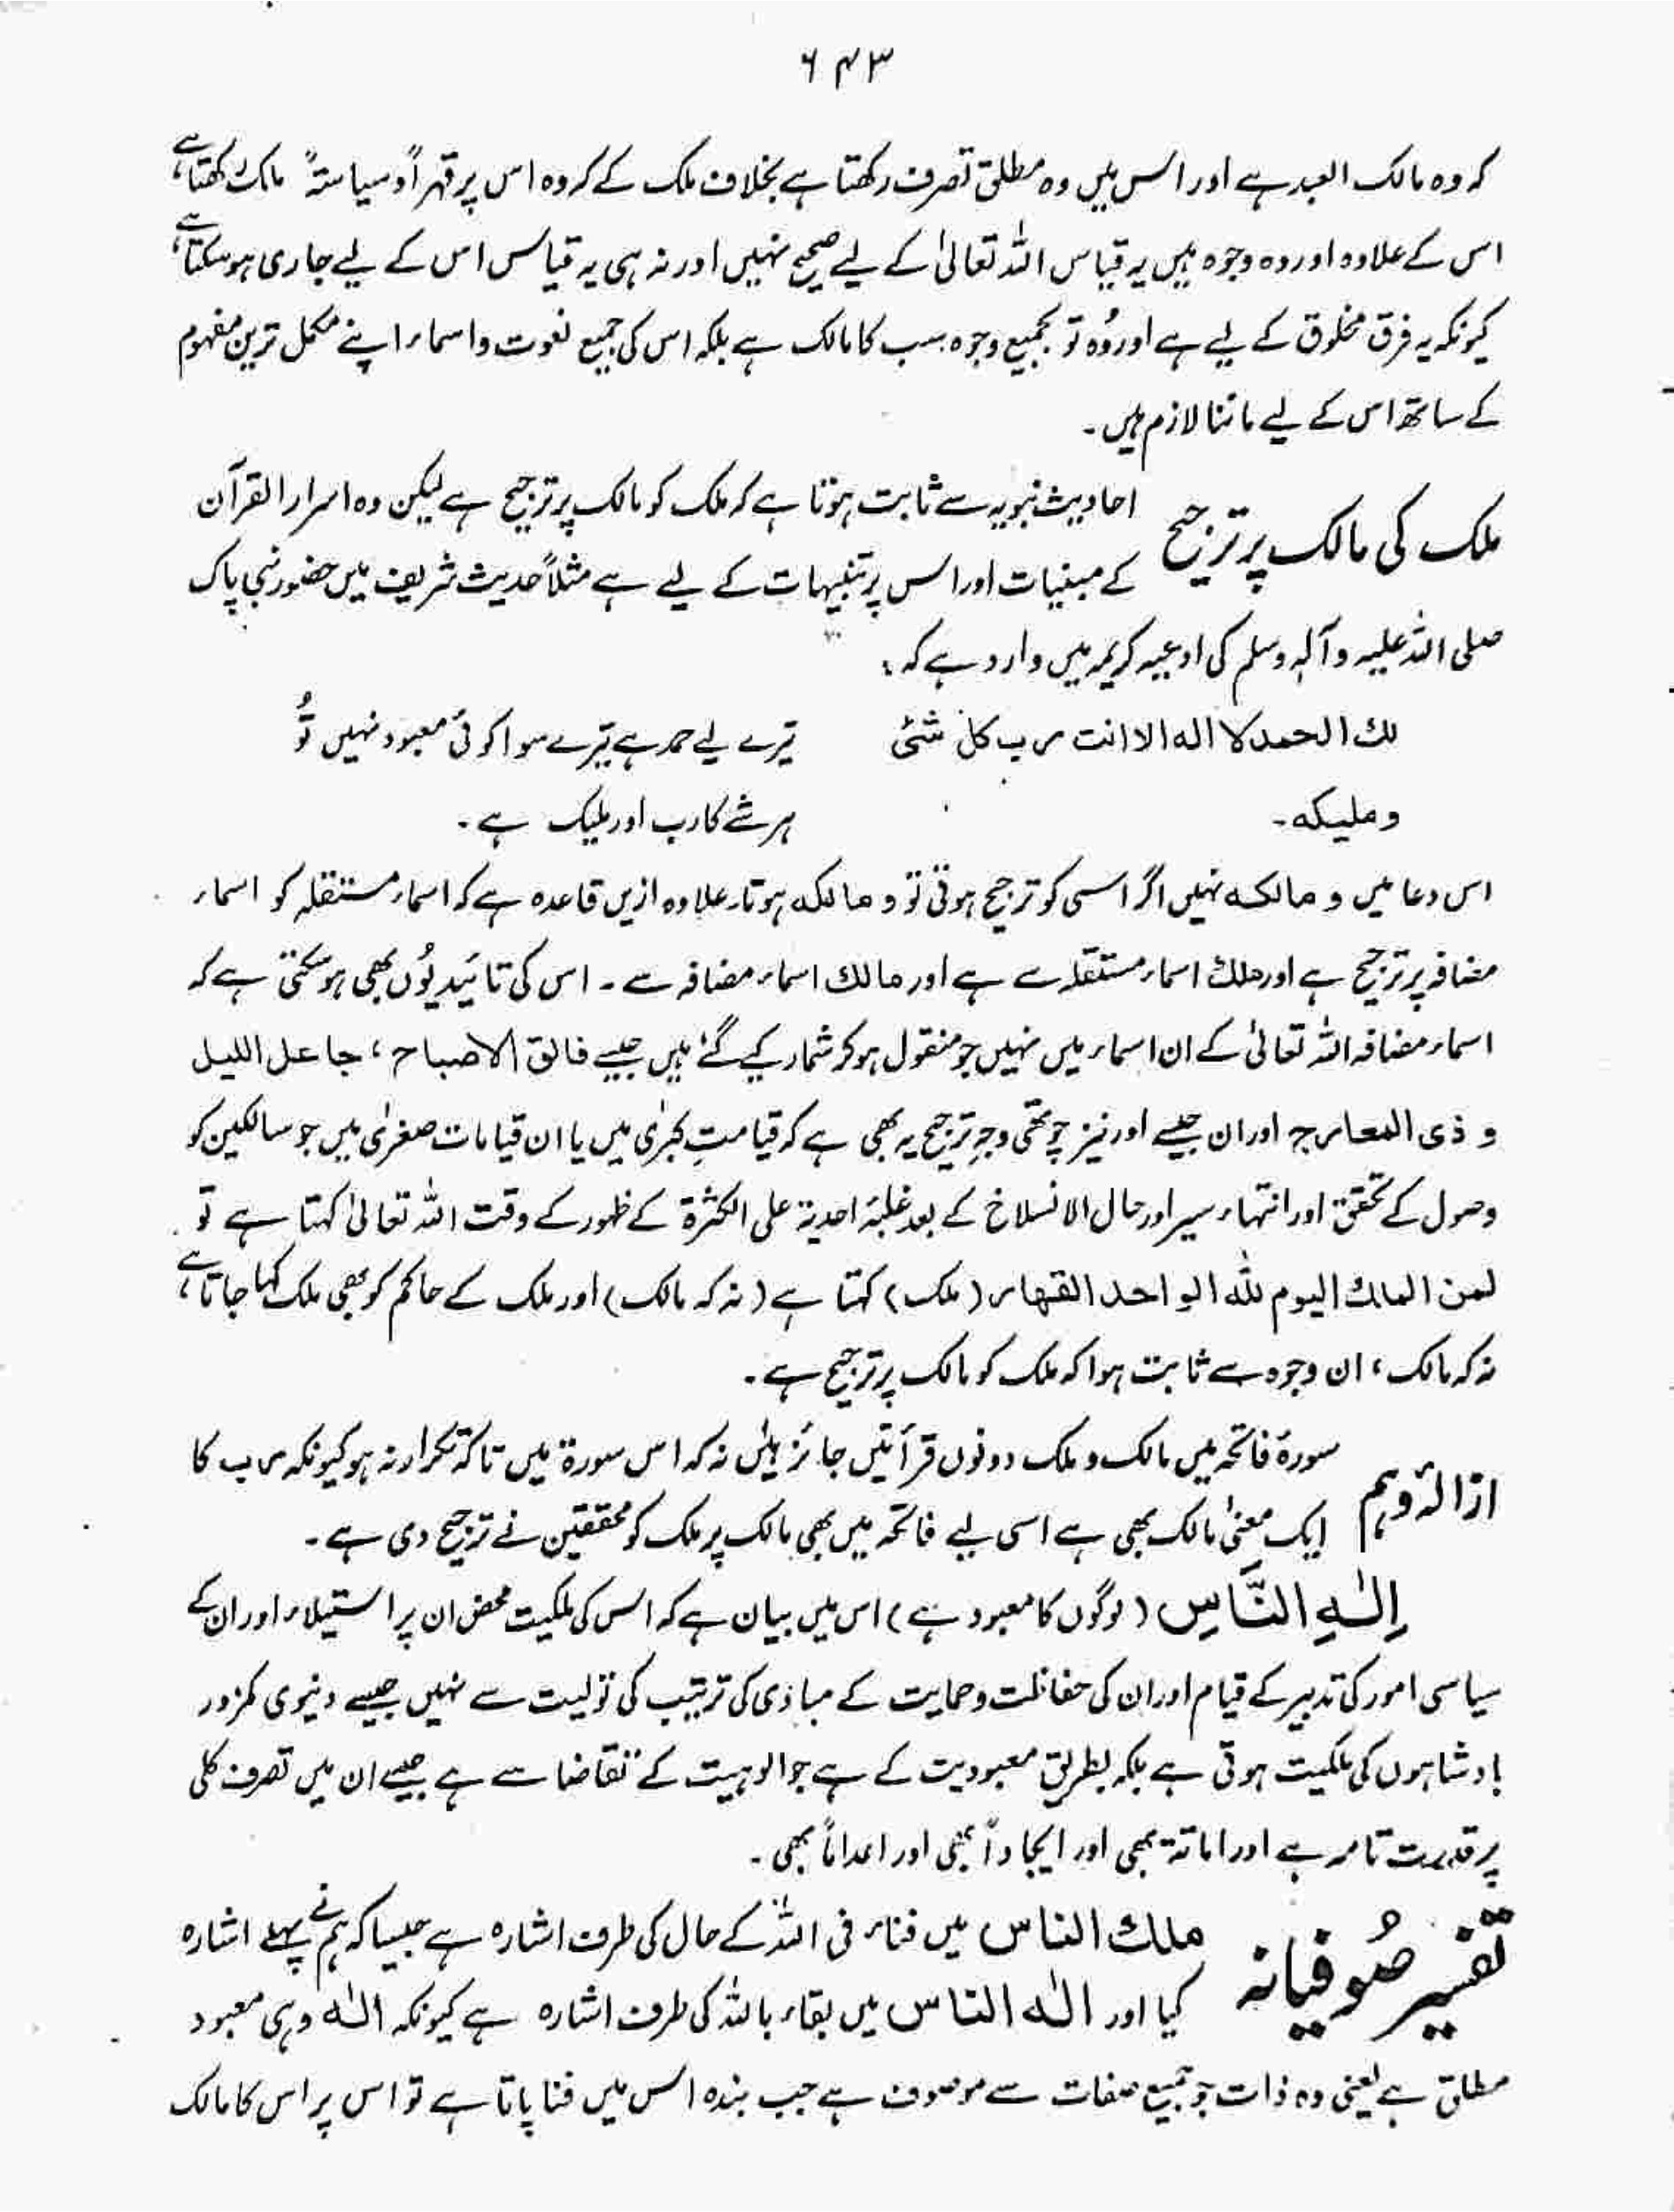 ۶۴۳
کہ وہ مالک العبد ہے اور اس میں وہ مطلق تصرف رکھتا ہے بخلاف ملک کے کہ وہ اس پر قہراً و سیاستہً مالک رکھتا ہے،
اس کے علاوہ اور وہ وجوہ ہیں یہ قیاس اللہ تعالیٰ کے لیے صحیح نہیں اور نہ ہی یہ قیاس اس کے لیے جاری ہو سکتا ہے،
کیونکہ یہ فرق مخلوق کے لیے ہے اور وُہ تو بجمیع وجوہ سب کا مالک ہے بلکہ اس کی جمیع نعوت و اسماء اپنے مکمل ترین مفہوم
کے ساتھ اس کے لیے ماننا لازم ہیں۔
ملک کی مالک پر ترجیح
احادیث نبویہ سے ثابت ہوتا ہے کہ ملک کو مالک پر ترجیح ہے لیکن وہ اسرار القرآن
کے مبنیات اور اس پر تنبیہات کے لیے ہے مثلاً حدیث شریف میں حضور نبی پاک
صلی اللہ علیہ وآلہٖ وسلم کی ادعیہ کریمہ میں وارد ہے کہ:
لك الحمد لا اله الا انت رب كل شئی
تیرے لیے حمد ہے تیرے سوا کوئی معبود نہیں تُو
و مليكه۔
ہر شے کا رب اور ملیک ہے۔
اس دعا میں و مالکہ نہیں اگر اسی کو ترجیح ہوتی تو و مالکہ ہوتا۔ علاوہ ازیں قاعدہ ہے کہ اسماء مستقلہ کو اسماء
مضافہ پر ترجیح ہے اور ملك اسماء مستقلہ سے ہے اور مالك اسماء مضافہ سے۔ اس کی تائید یُوں بھی ہو سکتی ہے کہ
اسماء مضافہ اللہ تعالیٰ کے ان اسماء میں نہیں جو منقول ہو کر شمار کیے گئے ہیں جیسے فالق الاصباح، جاعل الليل
و ذی المعارج اور ان جیسے اور نیز چوتھی وجہِ ترجیح یہ بھی ہے کہ قیامتِ کبرٰی میں یا ان قیامات صغرٰی میں جو سالکین کو
وصول کے تحقق اور انتہاء سیر اور حال الانسلاخ کے بعد غلبۂ احدیۃ علی الکثرۃ کے ظہور کے وقت اللہ تعالیٰ کہتا ہے تو
لمن الملك اليوم لله الواحد القهار (ملک) کہتا ہے (نہ کہ مالک) اور ملک کے حاکم کو بھی ملک کہا جاتا ہے،
نہ کہ مالک، ان وجوہ سے ثابت ہوا کہ ملک کو مالک پر ترجیح ہے۔
ازالۂ وہم
سورۂ فاتحہ میں مالک و ملک دونوں قرأتیں جائز ہیں نہ کہ اس سورۃ میں تاکہ تکرار نہ ہو کیونکہ رب کا
ایک معنیٰ مالک بھی ہے اسی لیے فاتحہ میں بھی مالک پر ملک کو محققین نے ترجیح دی ہے۔
اِلٰهِ النَّاسِ (لوگوں کا معبود ہے) اس میں بیان ہے کہ اس کی ملکیت محض ان پر استیلاء اور ان کے
سیاسی امور کی تدبیر کے قیام اور ان کی حفاظت و حمایت کے مبادی کی ترتیب کی تولیت سے نہیں جیسے دنیوی کمزور
بادشاہوں کی ملکیت ہوتی ہے بلکہ بطریق معبودیت کے ہے جو الوہیت کے تقاضا سے ہے جیسے ان میں تصرف کلی
پر قدرت تامہ ہے اور اماتۃ بھی اور ایجاداً بھی اور اعداماً بھی۔
تفسیر صُوفیانہ
ملك الناس میں فناء فی اللہ کے حال کی طرف اشارہ ہے جیسا کہ ہم نے پہلے اشارہ
کیا اور الٰه الناس میں بقاء باللہ کی طرف اشارہ ہے کیونکہ الٰه وہی معبود
مطلق ہے یعنی وہ ذات جو جمیع صفات سے موصوف ہے جب بندہ اس میں فنا پاتا ہے تو اس پر اس کا مالک